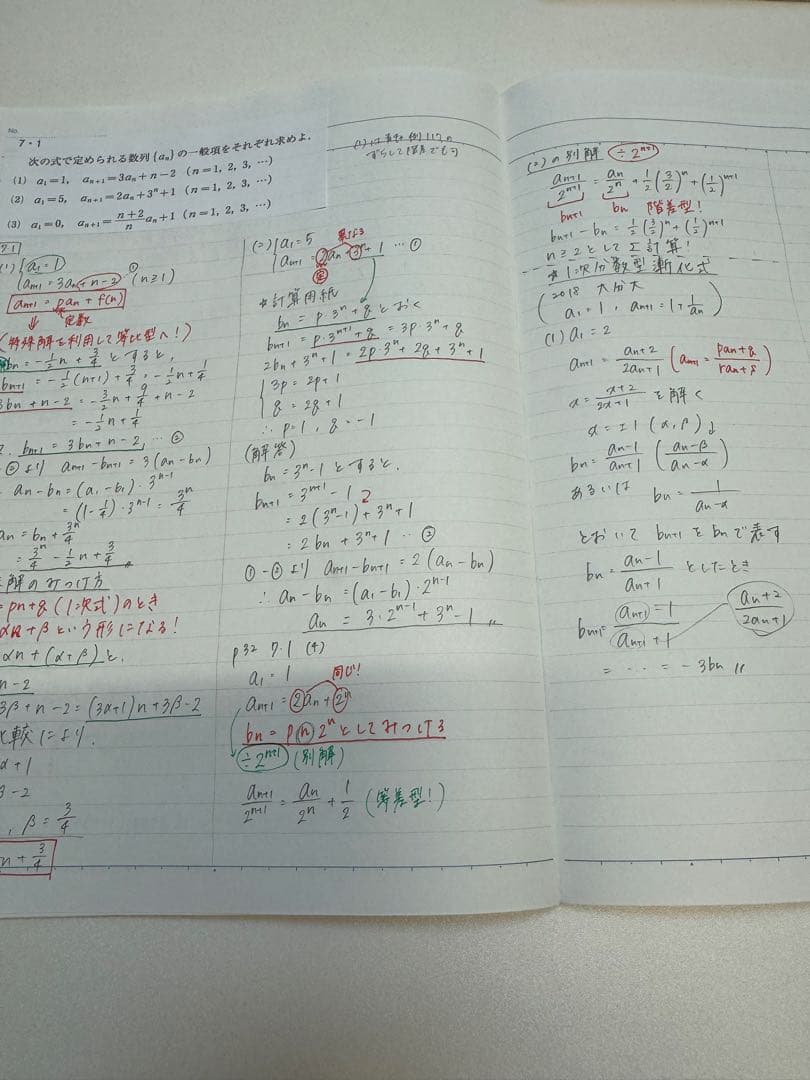 No.
7・1
次の式で定められる数列{aₙ}の一般項をそれぞれ求めよ.
(1) a₁=1, aₙ₊₁=3aₙ+n−2 (n=1, 2, 3, …)
(2) a₁=5, aₙ₊₁=2aₙ+3ⁿ+1 (n=1, 2, 3, …)
(3) a₁=0, aₙ₊₁=(n+2)/n aₙ+1 (n=1, 2, 3, …)
7.1
a₁=1
aₙ₊₁=3aₙ+n−2 (n≥1) ①
aₙ₊₁=paₙ+f(n)
定数
(特殊解を利用して等比型へ!)
bₙ=−1/2 n+3/4 とすると,
bₙ₊₁=−1/2(n+1)+3/4=−1/2 n+1/4
3bₙ+n−2=−3/2 n+9/4+n−2
=−1/2 n+1/4
bₙ₊₁=3bₙ+n−2 … ②
②より aₙ₊₁−bₙ₊₁=3(aₙ−bₙ)
aₙ−bₙ=(a₁−b₁)・3ⁿ⁻¹
=(1−1/4)・3ⁿ⁻¹=3ⁿ/4
aₙ=bₙ+3ⁿ/4
=3ⁿ/4−1/2 n+3/4
解のみつけ方
=pn+q (1次式)のとき
αn+βという形になる!
αn+(α+β)と.
n−2
3β+n−2=(3α+1)n+3β−2
比較により.
α+1
β−2
, β=3/4
n+3/4
(2) a₁=5
aₙ₊₁=2aₙ+3ⁿ+1 … ①
異なる
*計算用紙
bₙ=p・3ⁿ+q とおく
bₙ₊₁=p・3ⁿ⁺¹+q=3p・3ⁿ+q
2bₙ+3ⁿ+1=2p・3ⁿ+2q+3ⁿ+1
3p=2p+1
q=2q+1
∴ p=1, q=−1
(解答)
bₙ=3ⁿ−1 とすると.
bₙ₊₁=3ⁿ⁺¹−1
=2(3ⁿ−1)+3ⁿ+1
=2bₙ+3ⁿ+1 … ②
①−②より aₙ₊₁−bₙ₊₁=2(aₙ−bₙ)
∴ aₙ−bₙ=(a₁−b₁)・2ⁿ⁻¹
aₙ=3・2ⁿ⁻¹+3ⁿ−1
p32 7.1 (4)
a₁=1
同じ!
aₙ₊₁=2aₙ+2ⁿ
bₙ=p(n)2ⁿとしてみつける
÷2ⁿ⁺¹ (別解)
aₙ₊₁/2ⁿ⁺¹=aₙ/2ⁿ+1/2 (等差型!)
(2)の別解 ÷2ⁿ⁺¹
aₙ₊₁/2ⁿ⁺¹=aₙ/2ⁿ+1/2(3/2)ⁿ+(1/2)ⁿ⁺¹
bₙ₊₁ bₙ 階差型!
bₙ₊₁−bₙ=1/2(3/2)ⁿ+(1/2)ⁿ⁺¹
n≥2としてΣ計算!
*1次分数型漸化式
(2018 大分大
a₁=1, aₙ₊₁=1+1/aₙ)
(1) a₁=2
aₙ₊₁=(aₙ+2)/(2aₙ+1) (aₙ₊₁=(paₙ+q)/(raₙ+s))
x=(x+2)/(2x+1) を解く
x=±1 (α, β)
bₙ=(aₙ−1)/(aₙ+1) ((aₙ−β)/(aₙ−α))
あるいは bₙ=1/(aₙ−α)
とおいて bₙ₊₁をbₙで表す
bₙ=(aₙ−1)/(aₙ+1) としたとき
bₙ₊₁=(aₙ₊₁−1)/(aₙ₊₁+1) (aₙ+2)/(2aₙ+1)
=……=−3bₙ